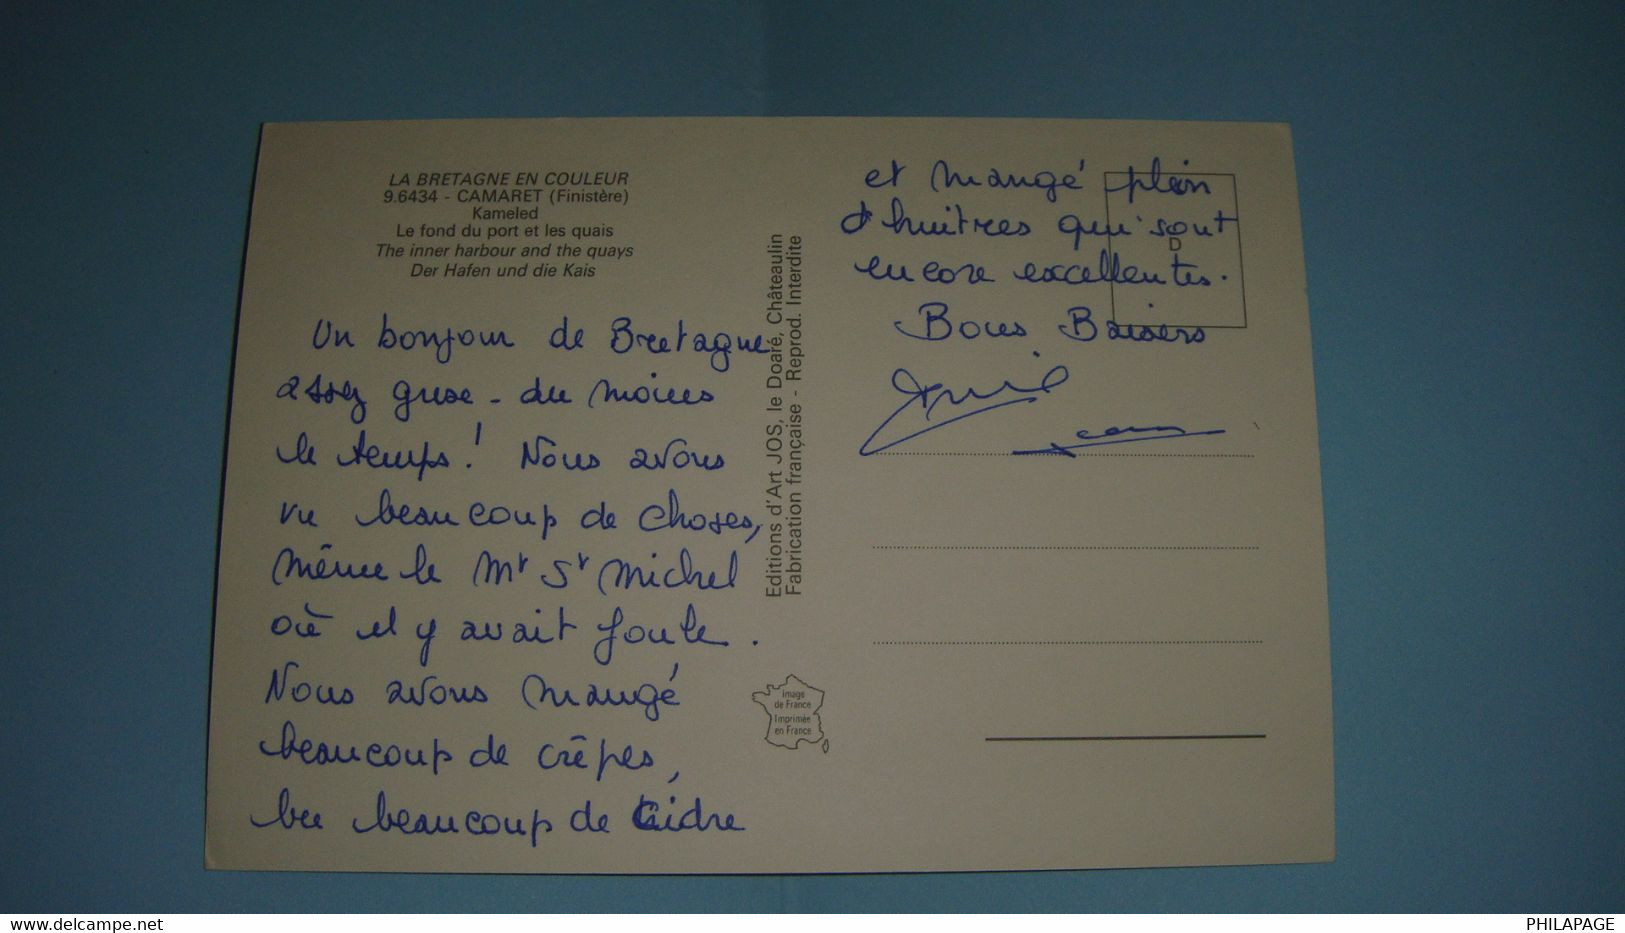 LA BRETAGNE EN COULEUR
9.6434 - CAMARET (Finistère)
Kameled
Le fond du port et les quais
The inner harbour and the quays
Der Hafen und die Kais
Un bonjour de Bretagne
assez grise - du moins
le temps ! Nous avons
vu beaucoup de choses,
même le Mt St Michel
où il y avait foule.
Nous avons mangé
beaucoup de crêpes,
bu beaucoup de Cidre
Editions d'Art JOS, le Doaré, Châteaulin
Fabrication française - Reprod. Interdite
image
de France
Imprimée
en France
et mangé plein
d'huitres qui sont
encore excellentes.
Bons Baisers
Jean
D
www.delcampe.net
PHILAPAGE